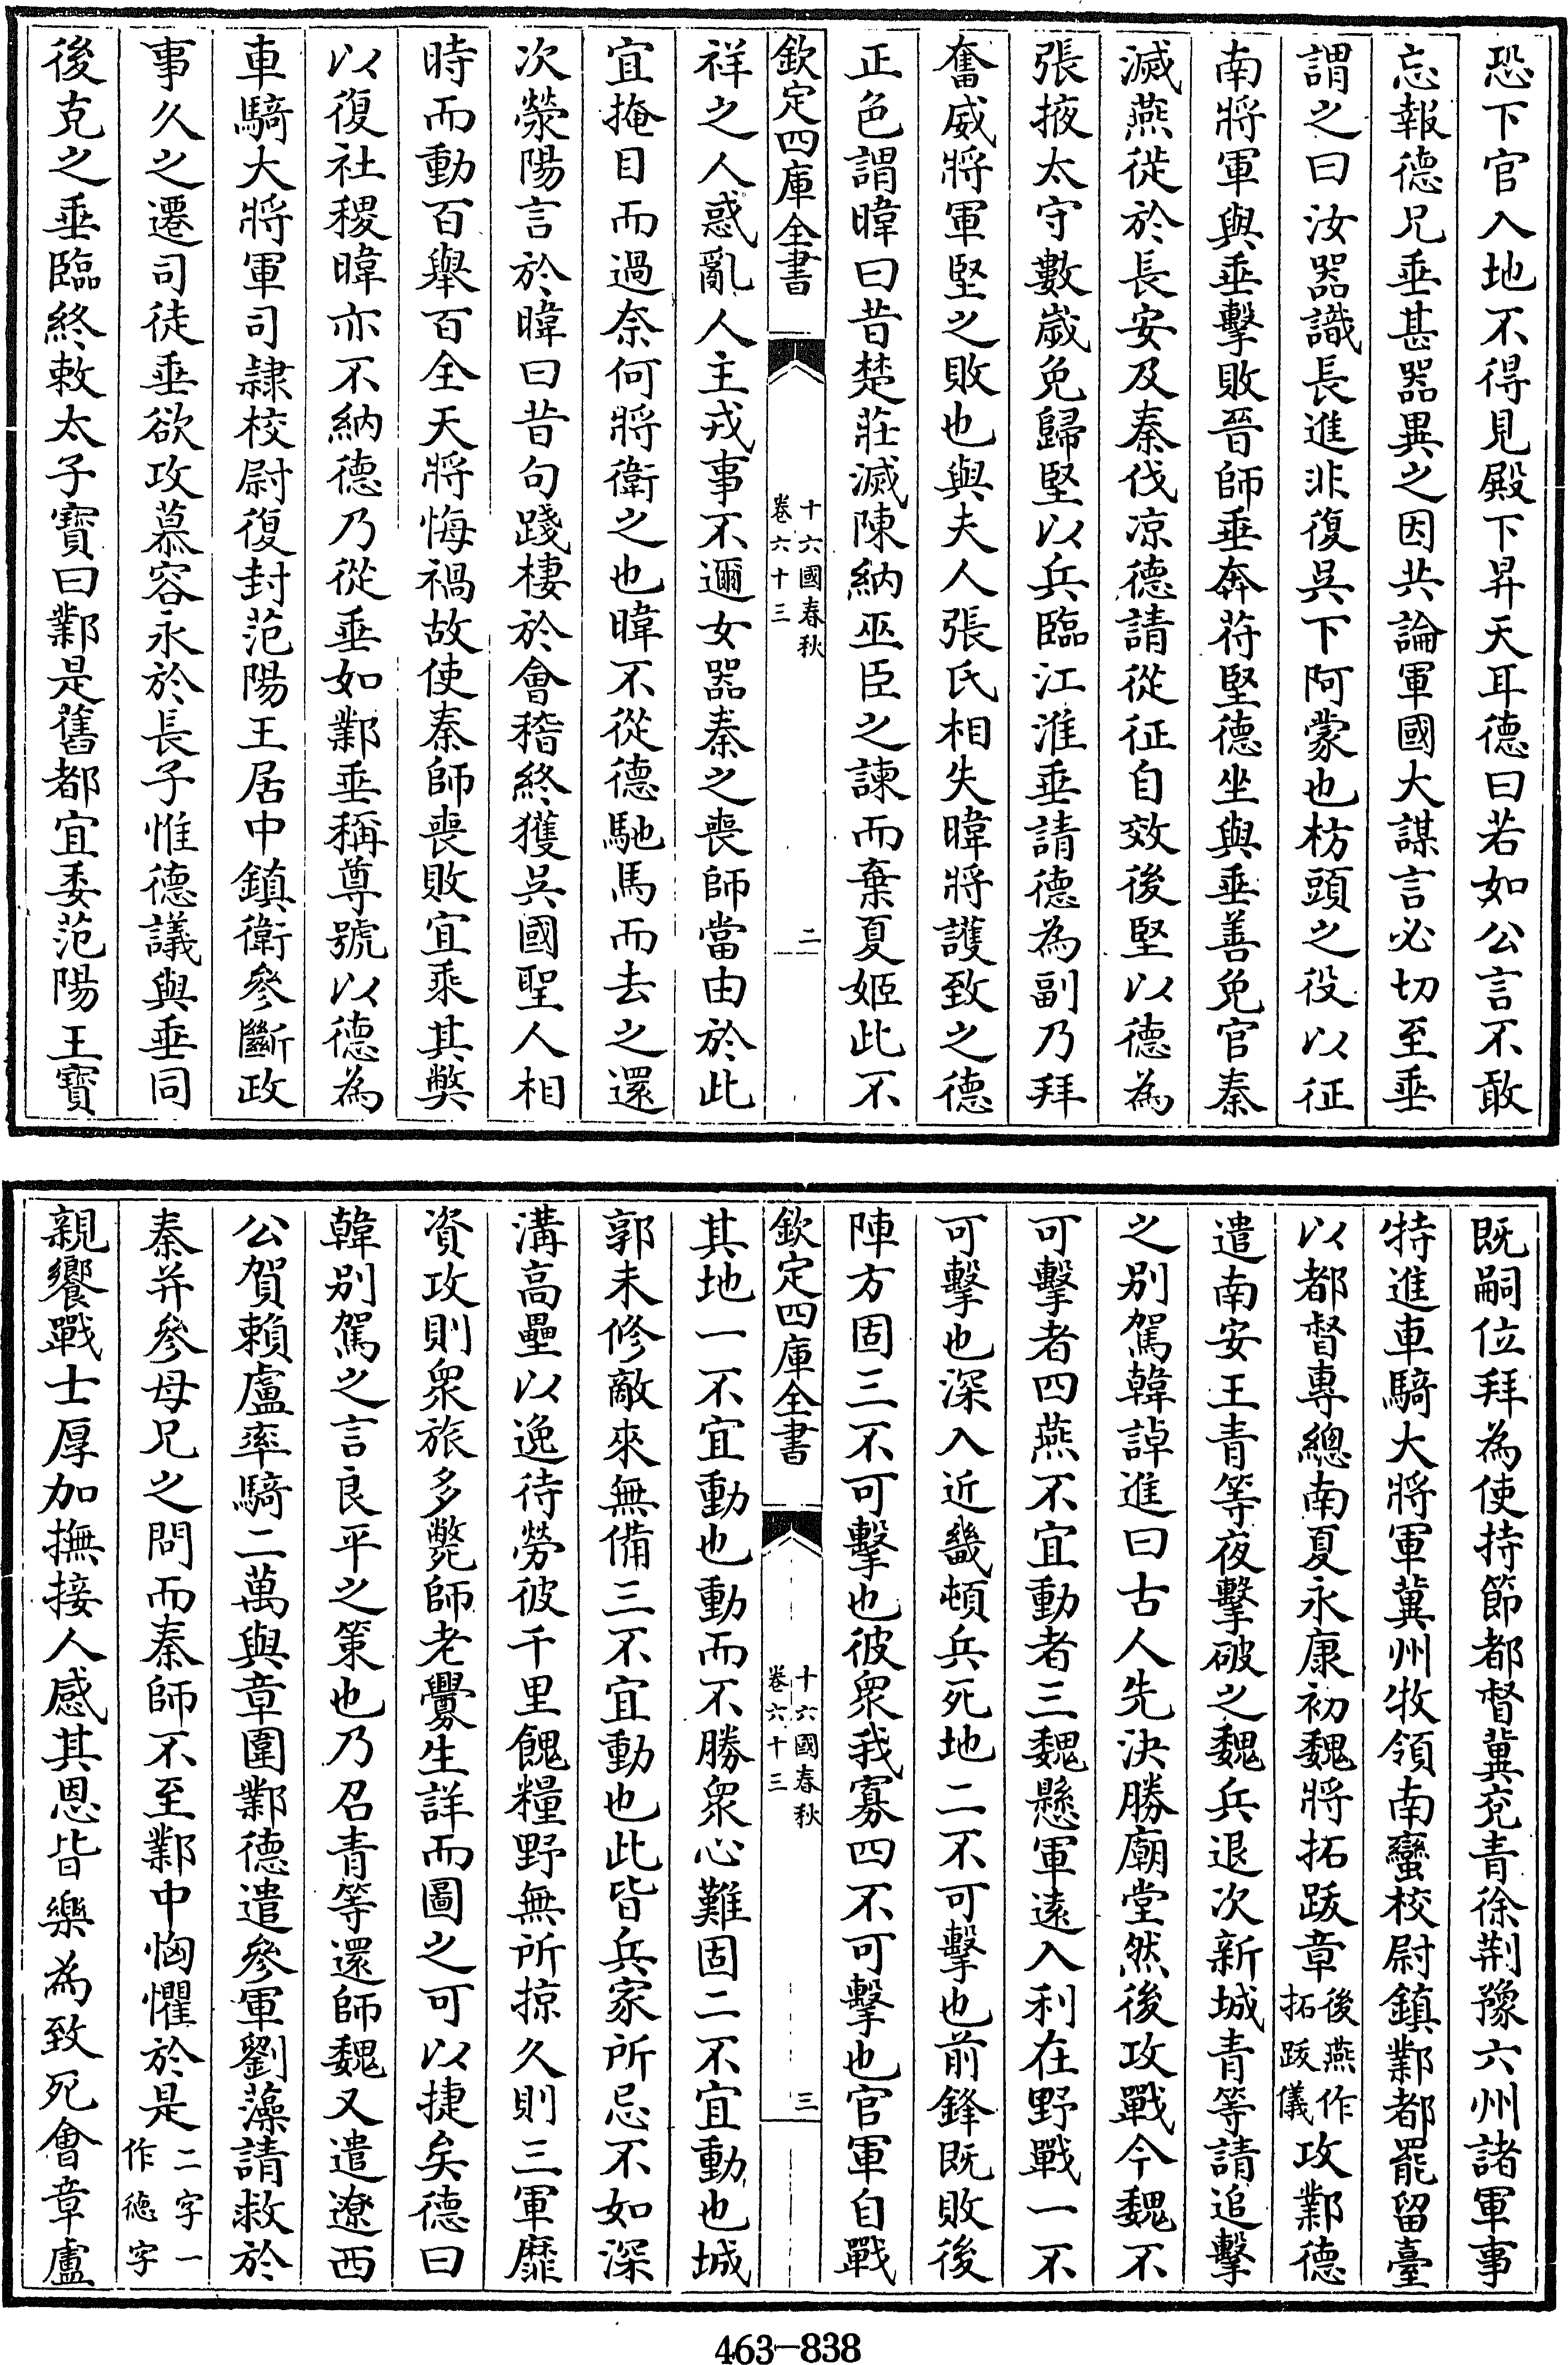 恐下官入地不得見殿下昇天耳德曰若如公言不敢
忘報德兄垂甚器異之因共論軍國大謀言必切至垂
謂之曰汝器識長進非復吳下阿蒙也枋頭之役以征
南將軍與垂擊敗晉師垂奔苻堅德坐與垂善免官秦
滅燕徙於長安及秦伐凉德請從征自效後堅以德為
張掖太守數歲免歸堅以兵臨江淮垂請德為副乃拜
奮威將軍堅之敗也與夫人張氏相失暐將護致之德
正色謂暐曰昔楚莊滅陳納巫臣之諫而棄夏姬此不
欽定四庫全書
十六國春秋
卷六十三
二
祥之人惑亂人主戎事不邇女器秦之喪師當由於此
宜掩目而過奈何將衛之也暐不從德馳馬而去之還
次滎陽言於暐曰昔句踐棲於會稽終獲吳國聖人相
時而動百舉百全天將悔禍故使秦師喪敗宜乘其弊
以復社稷暐亦不納德乃從垂如鄴垂稱尊號以德為
車騎大將軍司隷校尉復封范陽王居中鎮衛參斷政
事久之遷司徒垂欲攻慕容永於長子惟德議與垂同
後克之垂臨終敕太子寶曰鄴是舊都宜委范陽王寶
既嗣位拜為使持節都督冀兗青徐荆豫六州諸軍事
特進車騎大將軍冀州牧領南蠻校尉鎮鄴都罷留臺
以都督專總南夏永康初魏將拓跋章後燕作拓跋儀攻鄴德
遣南安王青等夜擊破之魏兵退次新城青等請追擊
之别駕韓諄進曰古人先決勝廟堂然後攻戰今魏不
可擊者四燕不宜動者三魏懸軍遠入利在野戰一不
可擊也深入近畿頓兵死地二不可擊也前鋒既敗後
陣方固三不可擊也彼衆我寡四不可擊也官軍自戰
欽定四庫全書
十六國春秋
卷六十三
三
其地一不宜動也動而不勝衆心難固二不宜動也城
郭未修敵來無備三不宜動也此皆兵家所忌不如深
溝高壘以逸待勞彼千里餽糧野無所掠久則三軍靡
資攻則衆旅多斃師老釁生詳而圖之可以捷矣德曰
韓别駕之言良平之策也乃召青等還師魏又遣遼西
公賀賴盧率騎二萬與章圍鄴德遣參軍劉藻請救於
秦并參母兄之問而秦師不至鄴中恟懼於是二字一作德字
親饗戰士厚加撫接人感其恩皆樂為致死會章盧
463-838